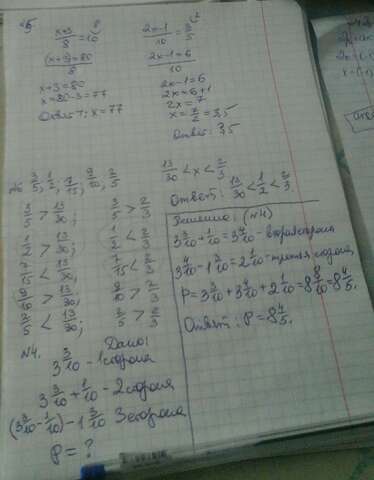 5
(x+3)/8 = 10
(x+3)=80/8
x+3=80
x=80-3=77
Ответ: x=77
(2x-1)/10 = 3/5
2x-1=6/10
2x-1=6
2x=6+1
2x=7
x=7/2=3,5
Ответ: 3,5
3/5, 1/2, 7/15, 9/10, 2/5
13/30 < x < 2/3
Ответ: 13/30 < 1/2 < 2/3
3/5 > 13/30; 3/5 > 2/3
1/2 > 13/30; 1/2 < 2/3
7/15 < 13/30; 7/15 < 2/3
9/10 > 13/30; 9/10 > 2/3
2/5 < 13/30; 2/5 > 2/3
Решение: (№4)
3 3/10 + 1/10 = 3 4/10 - вторая сторона
3 4/10 - 1 3/10 = 2 1/10 - третья сторона
P = 3 3/10 + 3 4/10 + 2 1/10 = 8 8/10 = 8 4/5.
Ответ: P = 8 4/5.
№4. Дано:
3 3/10 - 1 сторона
3 3/10 + 1/10 - 2 сторона
(3 3/10 - 1/10) - 1 3/10 3 сторона
P = ?